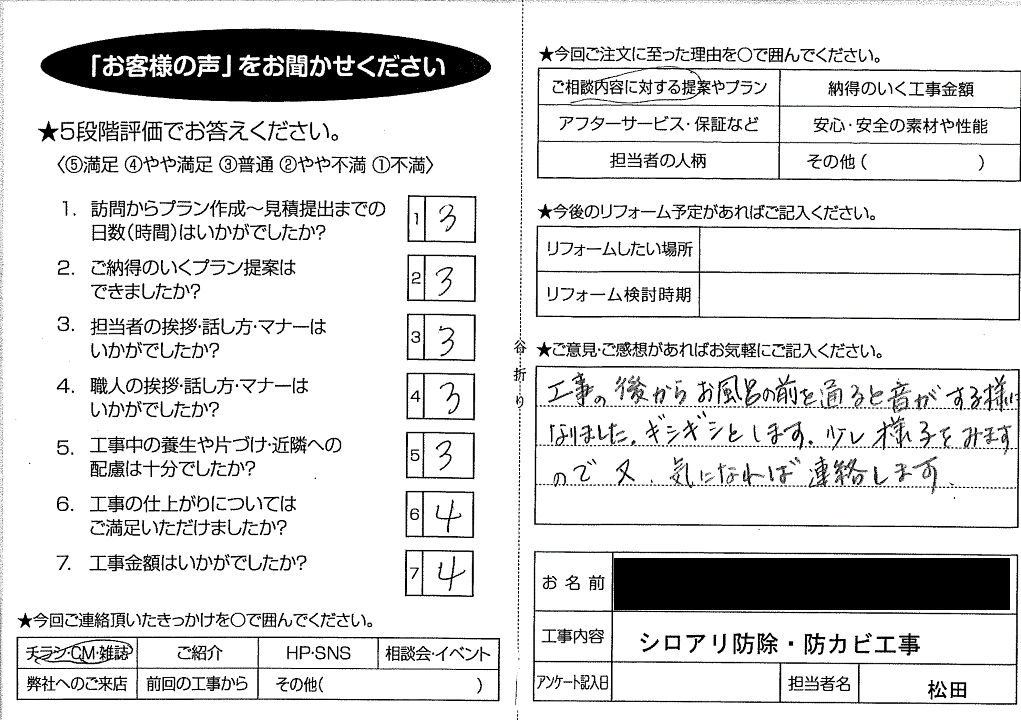 「お客様の声」をお聞かせください
★5段階評価でお答えください。
〈⑤満足 ④やや満足 ③普通 ②やや不満 ①不満〉
1. 訪問からプラン作成～見積提出までの
日数(時間)はいかがでしたか?
1 3
2. ご納得のいくプラン提案は
できましたか?
2 3
3. 担当者の挨拶・話し方・マナーは
いかがでしたか?
3 3
4. 職人の挨拶・話し方・マナーは
いかがでしたか?
4 3
5. 工事中の養生や片づけ・近隣への
配慮は十分でしたか?
5 3
6. 工事の仕上がりについては
ご満足いただけましたか?
6 4
7. 工事金額はいかがでしたか?
7 4
★今回ご連絡頂いたきっかけを○で囲んでください。
チラシ・CM・雑誌 ご紹介 HP・SNS 相談会・イベント
弊社へのご来店 前回の工事から その他( )
谷折り
★今回ご注文に至った理由を○で囲んでください。
ご相談内容に対する提案やプラン 納得のいく工事金額
アフターサービス・保証など 安心・安全の素材や性能
担当者の人柄 その他( )
★今後のリフォーム予定があればご記入ください。
リフォームしたい場所
リフォーム検討時期
★ご意見・ご感想があればお気軽にご記入ください。
工事の後からお風呂の前を通ると音がする様に
なりました。ギシギシとします。少し様子をみます
ので又、気になれば連絡します。
お名前
工事内容 シロアリ防除・防カビ工事
アンケート記入日 担当者名 松田